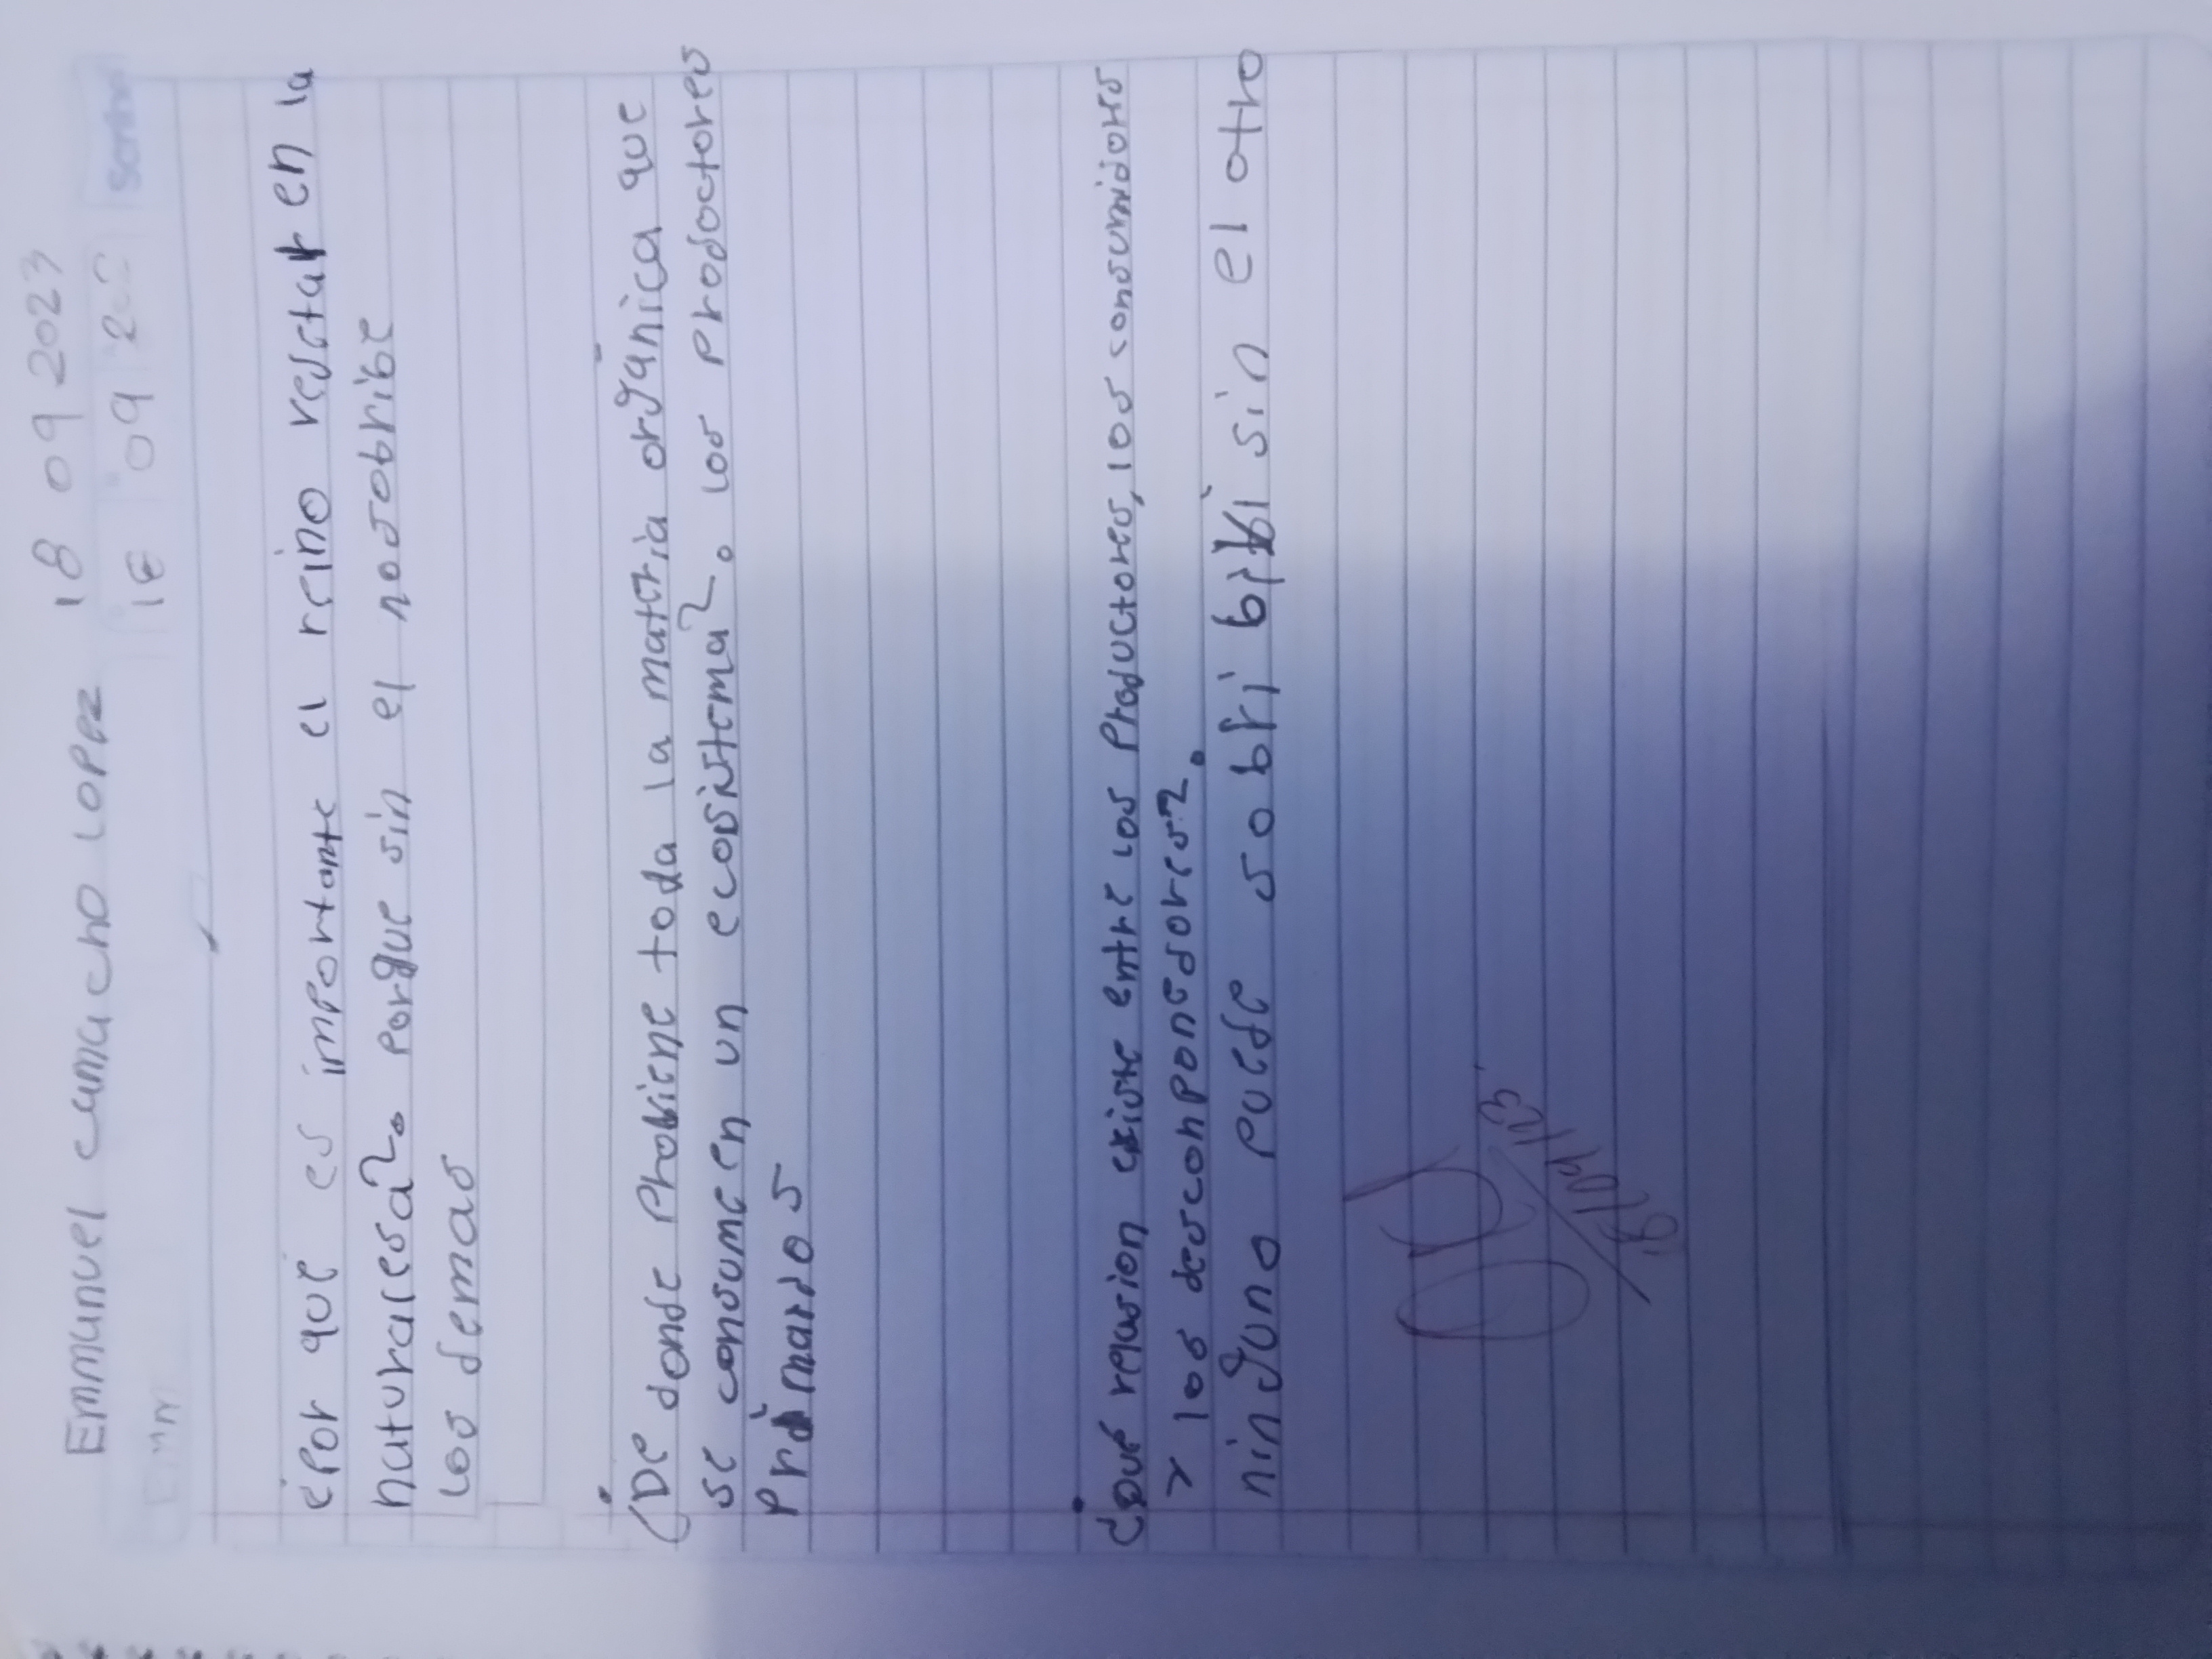 Emmanuel camacho Lopez 18 09 2023
18 09 202
¿Por qué es importante el reino vegetal en la
naturalesa?. Porque sin el nosobribe
los demas
¿De donde Probiene toda la materia orgánica que
se consume en un ecosistema?. Los Prodoctores
Primarios
¿Qué relasion existe entre los Productores, los consumidores
Y los desconponedores?.
ninguno puede sobri bibi sin el otro
18/09/23